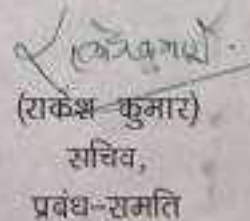 (राकेश कुमार)
सचिव,
प्रबंध-समिति